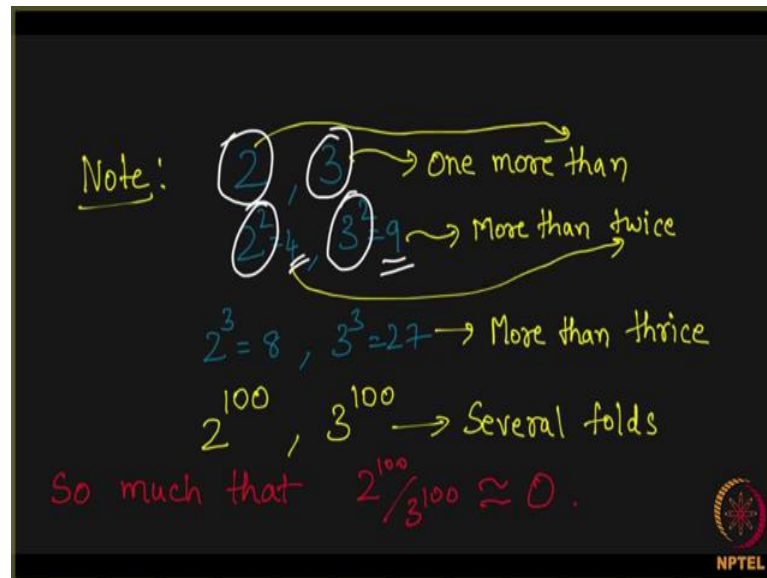 Note: 2 , 3 → One more than
2² = 4 , 3² = 9 → More than twice
2³ = 8 , 3³ = 27 → More than thrice
2¹⁰⁰ , 3¹⁰⁰ → Several folds
So much that 2¹⁰⁰/3¹⁰⁰ ≈ 0 .
NPTEL